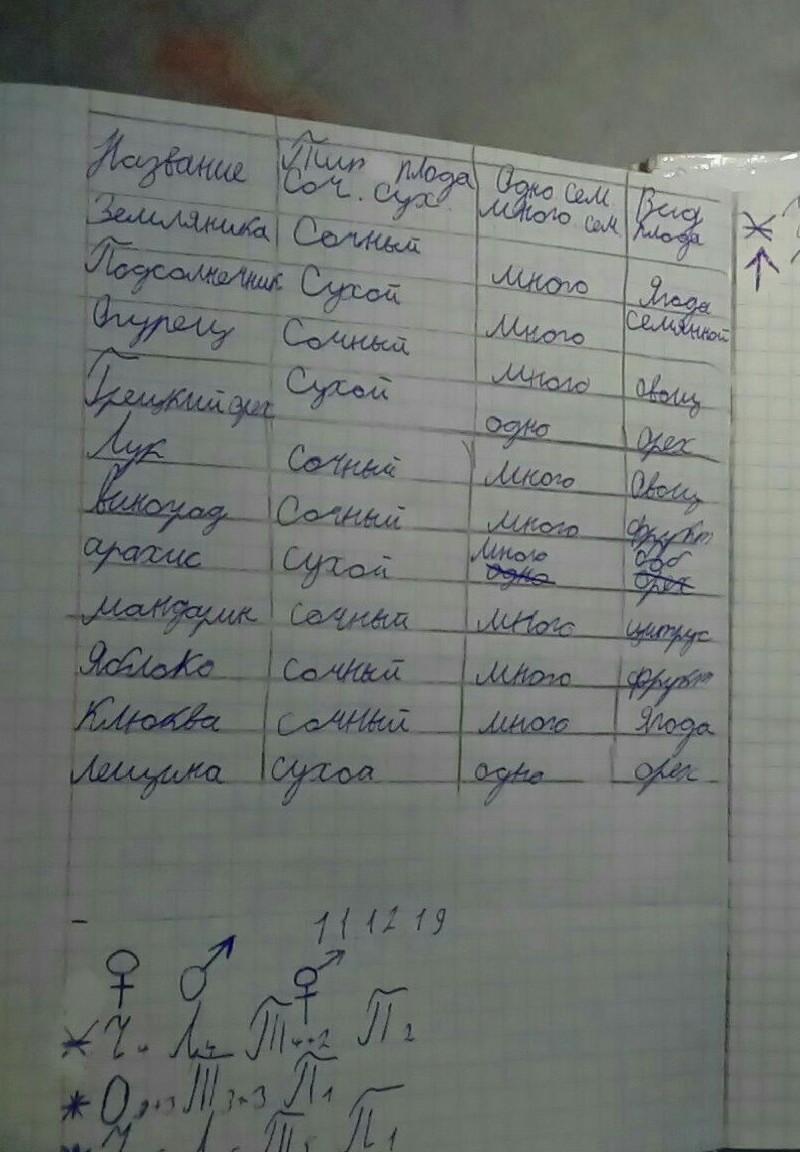 Название Тип плода Одно сем Вид
Соч. Сух. Много сем плода
Земляника Сочный много Ягода
Подсолнечник Сухой много Семянной
Огурец Сочный много овощ
Грецкий орех Сухой одно орех
Лук Сочный много Овощ
виноград Сочный много фрукт
арахис Сухой много боб
одно орех
мандарин сочный много цитрус
Яблоко Сочный много фрукт
Клюква сочный много Ягода
Лещина сухоа одно орех
11 12 19
♀ ♂ ⚥
* Ч Л Т П2
* О Т3+3 П1
* Ч Л Т П1